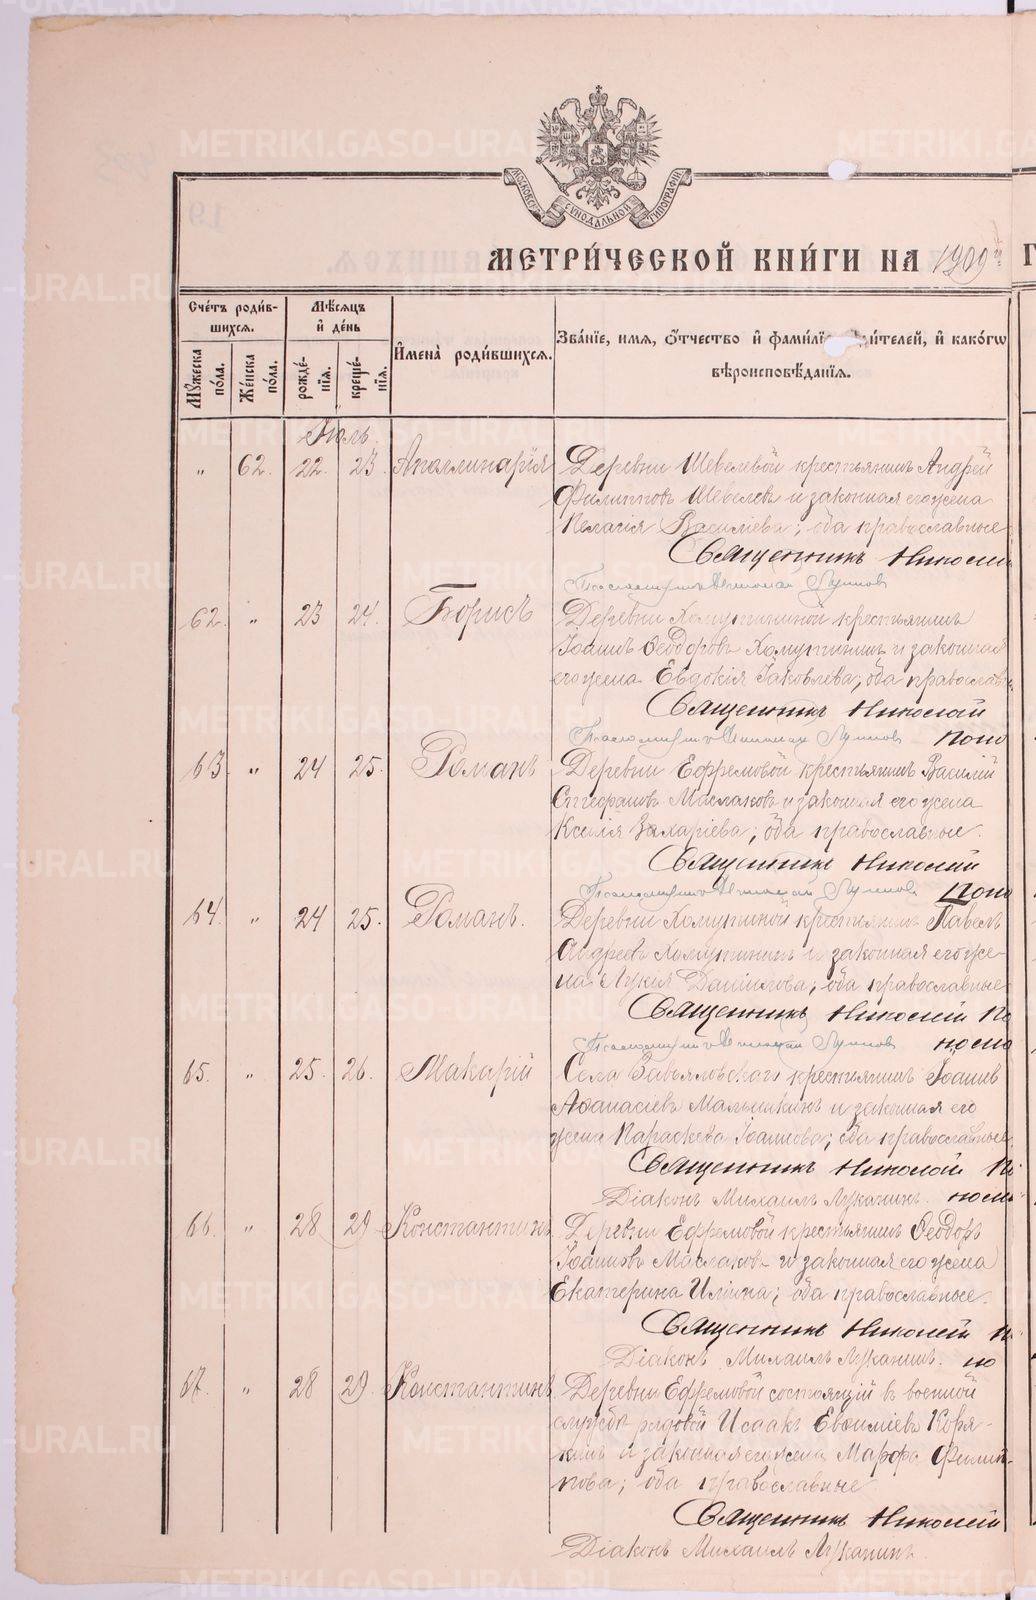 МОСКОВС. СѴНОДАЛЬНОЙ ТИПОГРАФИИ
МЕТРИ́ЧЕСКОЙ КНИ́ГИ НА 1909 й
Сче́тъ роди́в-
шихсѧ.
Мѣ́сѧцъ
и҆ де́нь
Мꙋ́жеска по́ла.
Же́нска по́ла.
рожде́-
нїѧ.
креще́-
нїѧ.
И҆мена̀ роди́вшихсѧ.
Зва́нїе, имѧ, ѻ҆́тчество и҆ фами́лїе ди́телей, и҆ како́гѡ
вѣроисповѣ́данїѧ.
Іюль.
„ 62. 22. 23. Аполлинарія
Деревни Шевелевой крестьянинъ Андрей
Филипповъ Шевелевъ и законная его жена
Пелагія Василіева; оба православные
Священникъ Николай
Псаломщикъ Лупповъ
62. „ 23 24. Борисъ
Деревни Хомутининой крестьянинъ
Іоаннъ Ѳеодоровъ Хомутининъ и законная
его жена Евдокія Іаковлева; оба православн
Священникъ Николай
Псаломщикъ Лупповъ Поно
63. „ 24 25. Романъ
Деревни Ефремовой крестьянинъ Василій
Стефановъ Маслаковъ и законная его жена
Ксенія Захаріева; оба православные.
Священникъ Николай
Псаломщикъ Лупповъ Поно
64. „ 24 25. Романъ.
Деревни Хомутиной крестьянинъ Павелъ
Андреевъ Хомутининъ и законная его же-
на Лукія Даніилова; оба православные
Священникъ Николай По
Псаломщикъ Лупповъ носо
65. „ 25. 26. Макарій
Села Завьяловскаго крестьянинъ Іоаннъ
Аѳанасіевъ Малышкинъ и законная его
жена Параскева Іоаннова; оба православные
Священникъ Николай По
Діаконъ Михаилъ Луканинъ.
66. „ 28 29. Константинъ
Деревни Ефремовой крестьянинъ Ѳеодоръ
Іоанновъ Маслаковъ и законная его жена
Екатерина Иліина; оба православные.
Священникъ Николай П
Діаконъ Михаилъ Луканинъ. но
67. „ 28 29. Константинъ
Деревни Ефремовой состоящій въ военной
службѣ рядовой Исаакъ Евѳиміевъ Коря-
кинъ и законная его жена Марѳа Филип-
пова; оба православные
Священникъ Николай
Діаконъ Михаилъ Луканинъ.
METRIKI.GASO-URAL.RU